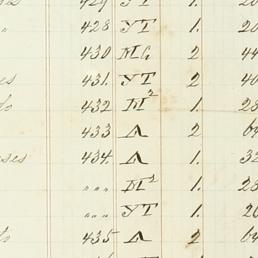 429 YT 1. 20
" 428 YT 1. 20
430 MG 2 44
es 431. YT 2 40
do 432 M² 1. 28
433 A 2 64
ses 434. A 1. 32
" " " M² 1. 28
" " " YT 1. 20
do 435 A 2 64